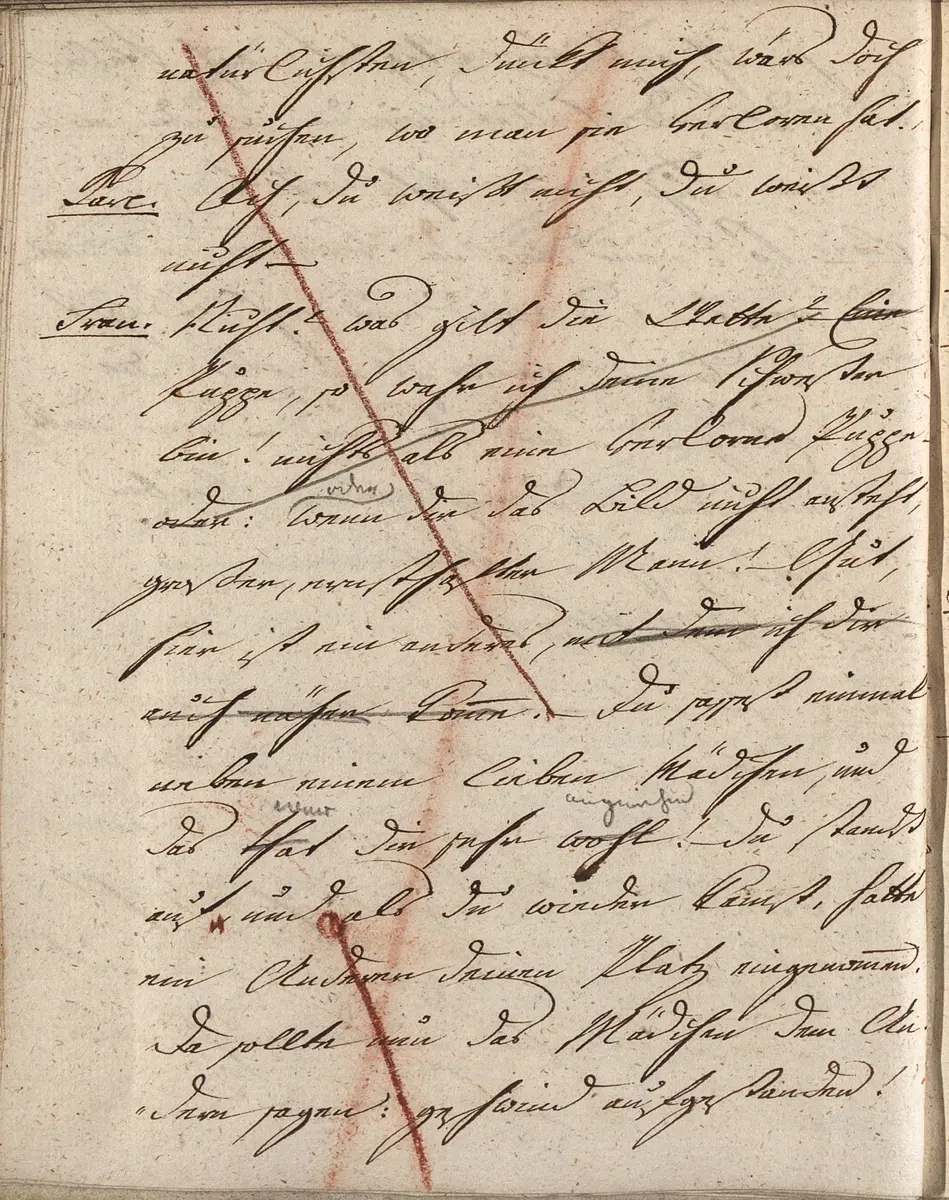 natürlichsten, dünkt mich, wärs doch
zu suchen, wo man sie verloren hat.
Karl. Ach, du weißt nicht, du weißt
nicht —
Fran. Nicht! was gilt die Wette? Eine
Puppe, so wahr ich deine Schwester
bin! nichts als eine verlorne Puppe —
oder
oder: wenn dir das Bild nicht ansteht,
großer, ernsthafter Mann! — Gut,
hier ist ein anderes, mit dem ich dir
auch näher kom̅e. — Du saßest einmal
neben einem lieben Mädchen, und
angenehm
das that dir sehr wohl! — du standst
auf, und als du wieder kamst, hatte
ein Anderer deinen Platz eingenom̅en.
Da sollte nun das Mädchen dem An-
dern sagen: geschwind aufgestanden!